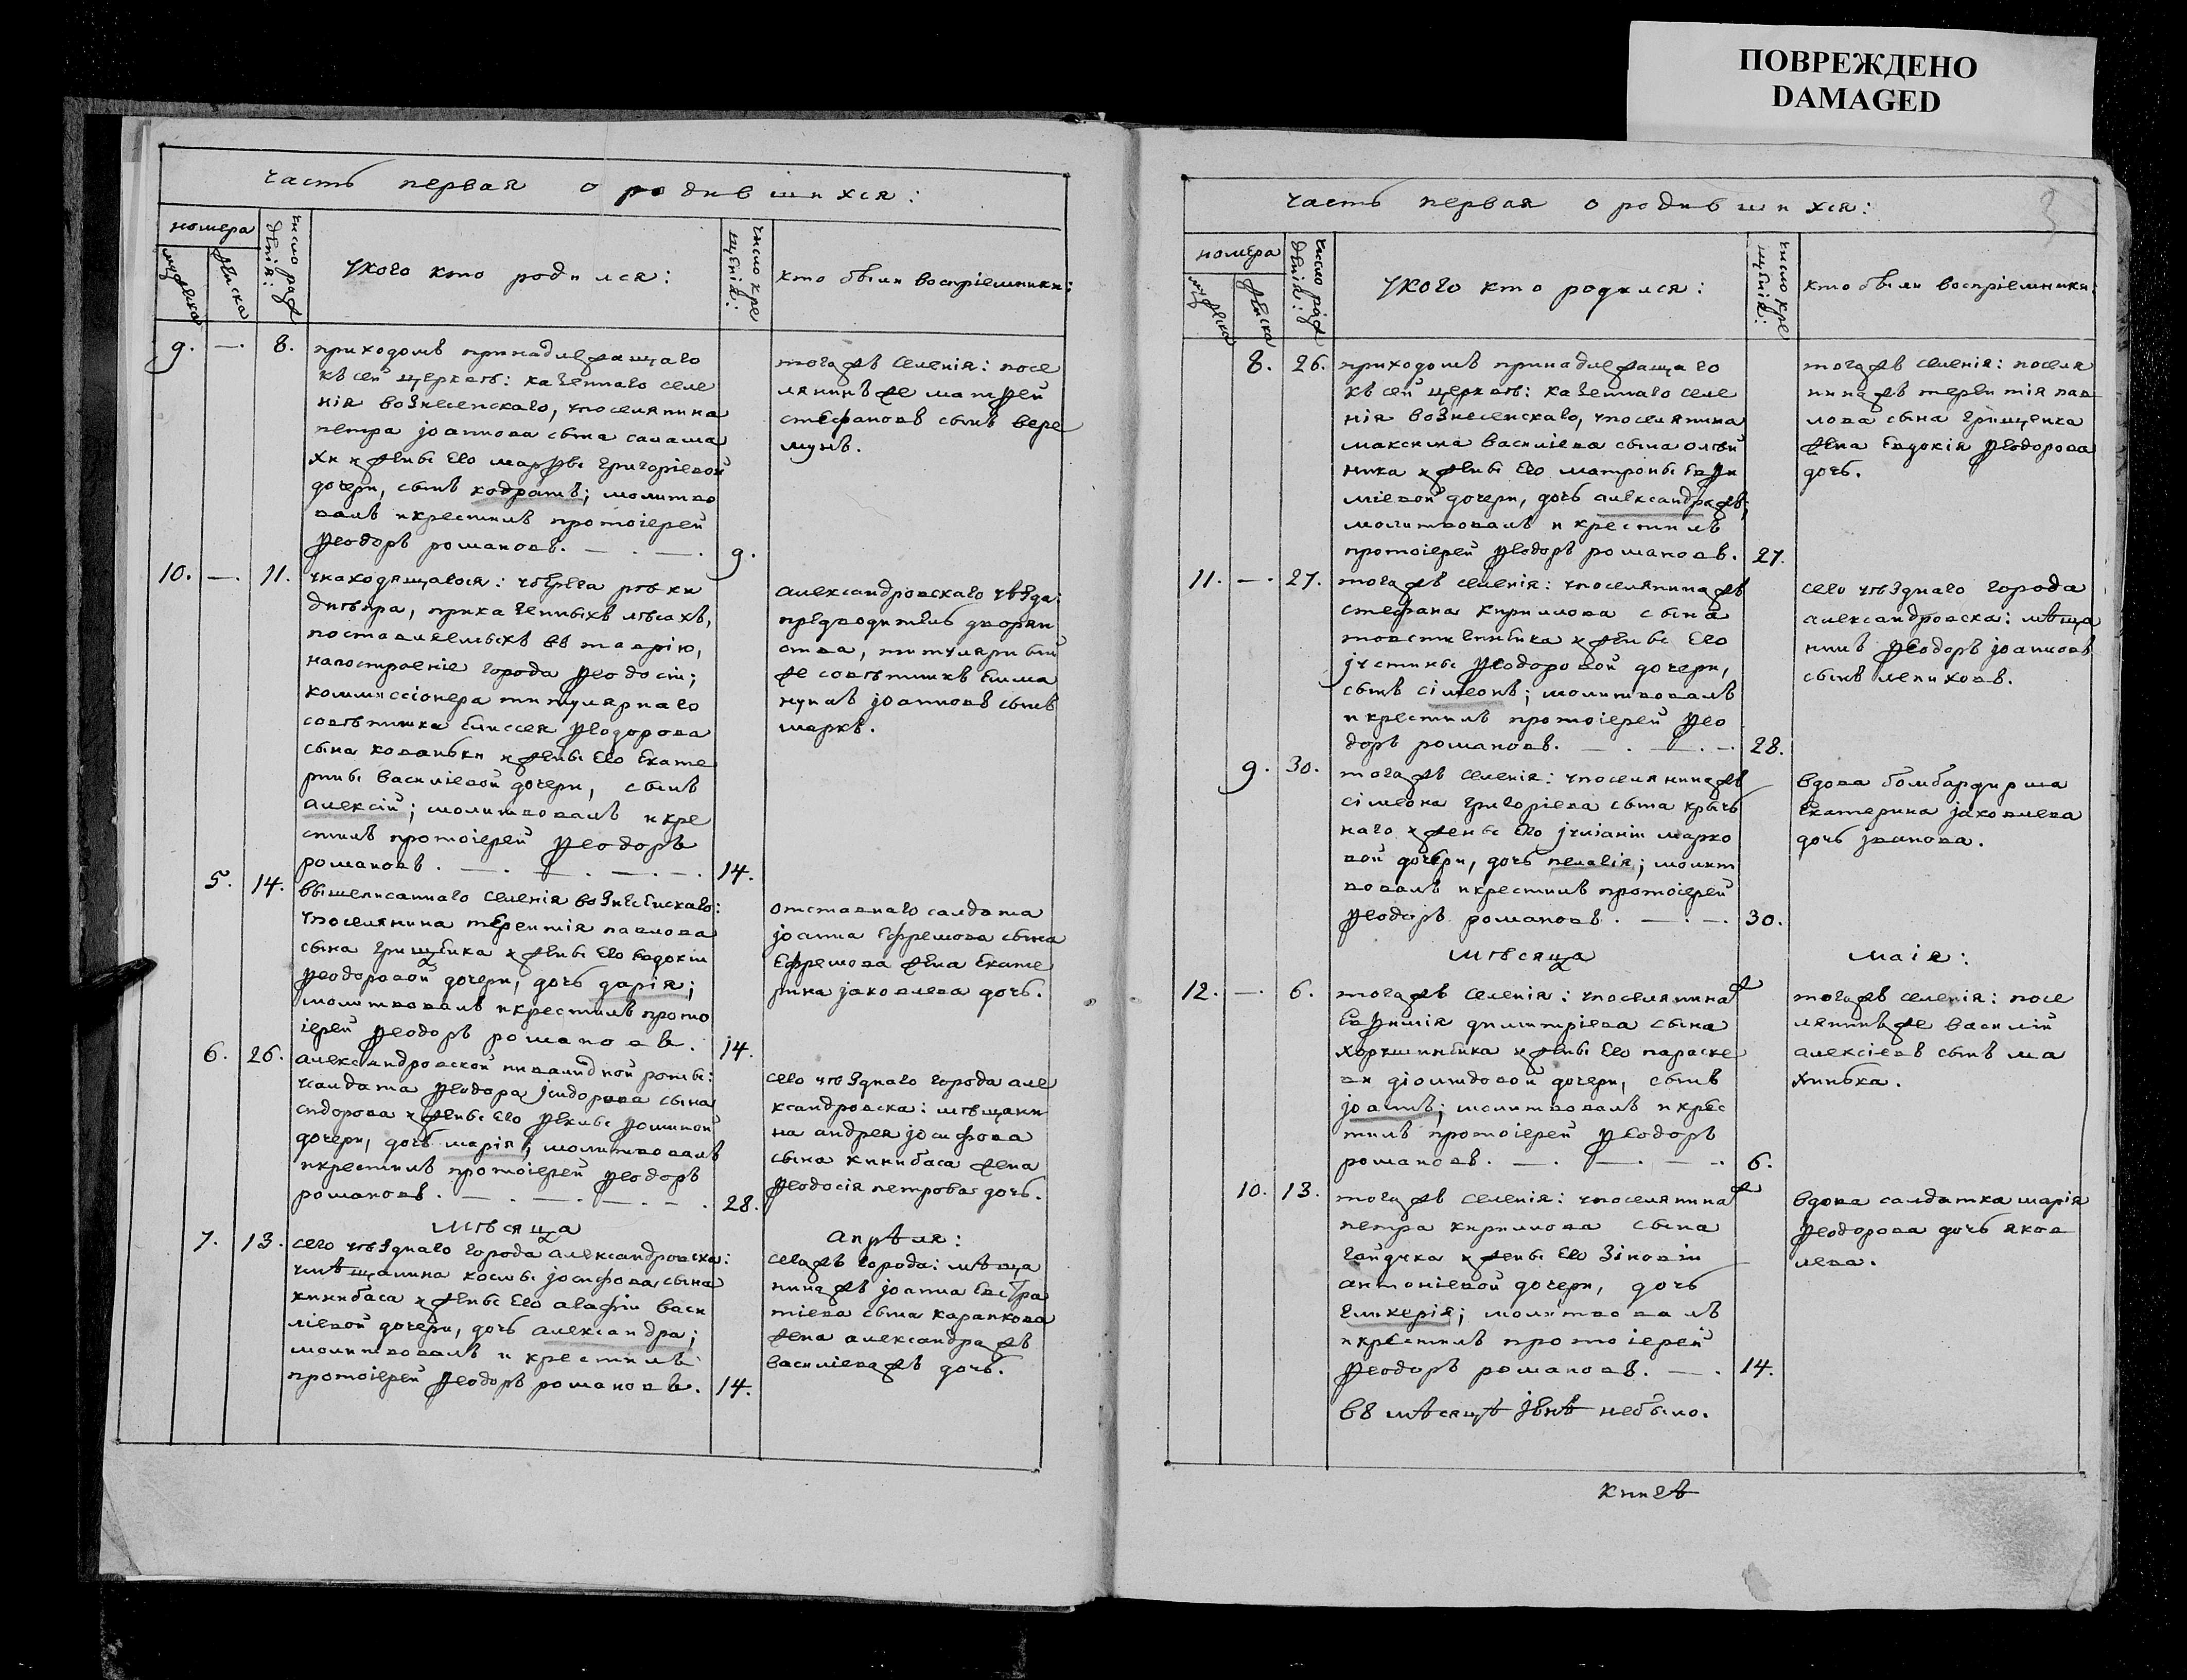 ПОВРЕЖДЕНО
DAMAGED
часть первая о родившихся:
номера
мужеска
женска
число рож
денія:
Укого кто родился:
число кре
щенія:
кто были воспріемники:
9. —. 8. приходомъ принадлежащаго
къ сей церквѣ: казеннаго селе
нія вознесенскаго, упоселянина
петра іоаннова сына салама
хи и жены его марѳы григоріевой
дочери, сынъ кодратъ; молитво
валъ и крестилъ протоіерей
Ѳеодоръ романовъ. —. —. 9.
тогожъ селенія: посе
лянинъ же матѳей
стефановъ сынъ вере
мунъ.
10. —. 11. унаходящагося: уберега рѣки
днѣпра, при казенныхъ лѣсахъ,
поставляемыхъ въ таврію,
напостроеніе города Ѳеодосіи;
коммиссіонера титулярнаго
совѣтника елиссея Ѳеодорова
сына кованьки и жены его екате
рины василіевой дочери, сынъ
алексій; молитвовалъ и кре
стилъ протоіерей Ѳеодоръ
романовъ. —. —. —. —. 14.
александровскаго уѣзда:
предводитель дворян
ства, титулярный
же совѣтникъ емма
нуилъ іоанновъ сынъ
маркъ.
5. 14. вышеписаннаго селенія вознесенскаго:
упоселянина терентія павлова
сына грищенка и жены его евдокіи
Ѳеодоровой дочери, дочь дарія;
молитвовалъ и крестилъ прото
іерей Ѳеодоръ романовъ. 14.
отставнаго салдата
іоанна ефремова сына
ефремова жена екате
рина іаковлева дочь.
6. 26. александровской инвалидной роты:
усалдата Ѳеодора ісидорова сына
сидорова и жены его Ѳеклы Ѳоминой
дочери, дочь марія; молитвовалъ
и крестилъ протоіерей Ѳеодоръ
романовъ. —. —. —. —. 28.
сего уѣзднаго города але
ксандровска: мѣщани
на андрея іосифова
сына кинибаса жена
Ѳеодосія петрова дочь.
мѣсяца апрѣля:
7. 13. сего уѣзднаго города александровска:
умѣщанина космы іосифова сына
кинибаса и жены его агафіи васи
ліевой дочери, дочь александра;
молитвовалъ и крестилъ
протоіерей Ѳеодоръ романовъ. 14.
сегожъ города: мѣща
нинажъ іоанна евстра
тіева сына карапкова
жена александражъ
василіеважъ дочь.
3
часть первая о родившихся:
номера
мужеска
женска
число рож
денія:
Укого кто родился:
число кре
щенія:
кто были воспріемники:
8. 26. приходомъ принадлежащаго
къ сей церквѣ: казеннаго селе
нія вознесенскаго, упоселянина
максима василіева сына олѣй
ника и жены его матроны евѳи
міевой дочери, дочь александражъ;
молитвовалъ и крестилъ
протоіерей Ѳеодоръ романовъ. 27.
тогожъ селенія: поселя
нинажъ терентія пав
лова сына грищенка
жена евдокія Ѳеодорова
дочь.
11. —. 27. тогожъ селенія: упоселянинажъ
стефана кириллова сына
и жены его
іустины Ѳеодоровой дочери,
сынъ сімеонъ; молитвовалъ
и крестилъ протоіерей Ѳео
доръ романовъ. —. —. —. 28.
сего уѣзднаго города
александровска: мѣща
нинъ Ѳеодоръ іоанновъ
сынъ лепиховъ.
9. 30. тогожъ селенія: упоселянинажъ
сімеона григоріева сына кручь
наго и жены его іуліаніи марко
вой дочери, дочь пелагія; молит
вовалъ и крестилъ протоіерей
Ѳеодоръ романовъ. —. —. 30.
вдова бомбардирша
екатерина іаковлева
дочь іванова.
мѣсяца маія:
12. —. 6. тогожъ селенія: упоселянинаж
евѳимія димитріева сына
и жены его параске
ви діомидовой дочери, сынъ
іоаннъ; молитвовалъ и крес
тилъ протоіерей Ѳеодоръ
романовъ. —. —. —. 6.
тогожъ селенія: посе
лянинъ же василій
алексіевъ сынъ ма
хинька.
10. 13. тогожъ селенія: упоселянинаж
петра кириллова сына
гайдука и жены его зіновіи
антоніевой дочери, дочь
гликерія; молитвовалъ
и крестилъ протоіерей
Ѳеодоръ романовъ. —. 14.
вдова салдатка марія
Ѳеодорова дочь яков
лева.
въ мѣсяцѣ іюнѣ небыло.